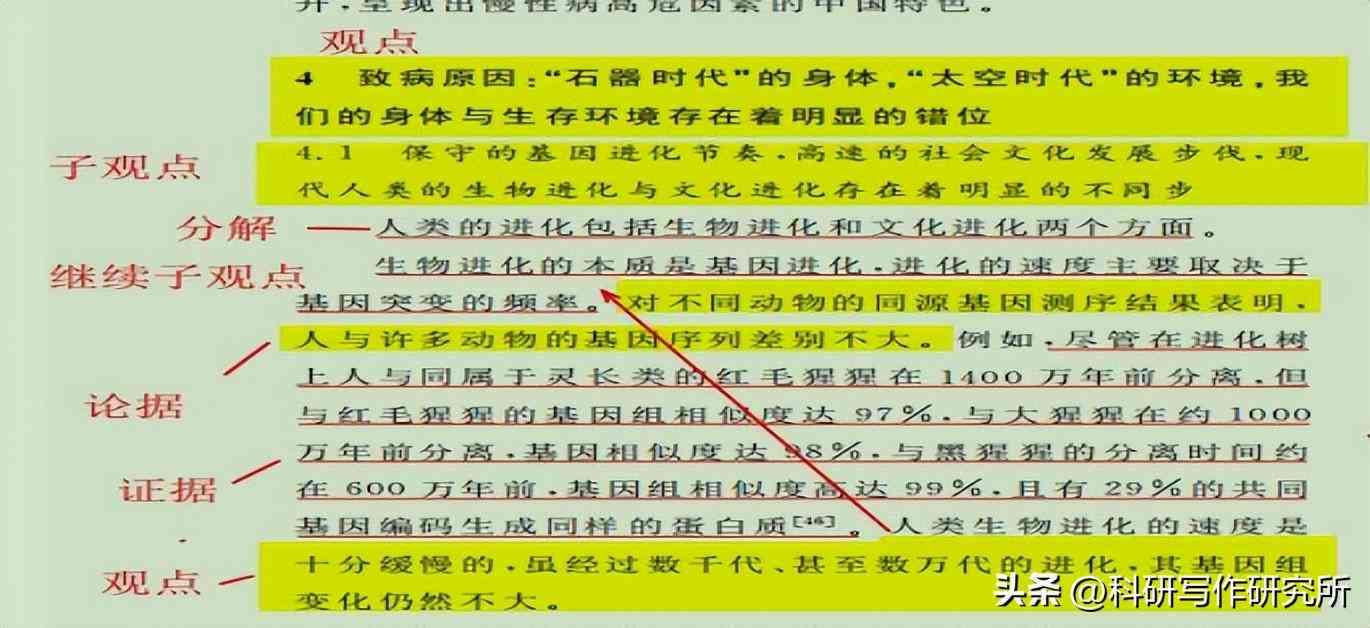 升，呈现出慢性病高危因素的中国特色。
观点
4 致病原因：“石器时代”的身体，“太空时代”的环境，我
们的身体与生存环境存在着明显的错位
子观点
4.1 保守的基因进化节奏，高速的社会文化发展步伐，现
代人类的生物进化与文化进化存在着明显的不同步
分解
人类的进化包括生物进化和文化进化两个方面。
继续子观点
生物进化的本质是基因进化，进化的速度主要取决于
基因突变的频率。对不同动物的同源基因测序结果表明，
人与许多动物的基因序列差别不大。例如，尽管在进化树
上人与同属于灵长类的红毛猩猩在1400万年前分离，但
论据
与红毛猩猩的基因组相似度达97%，与大猩猩在约1000
万年前分离，基因相似度达98%，与黑猩猩的分离时间约
证据
在600万年前，基因组相似度高达99%，且有29%的共同
基因编码生成同样的蛋白质[46]。人类生物进化的速度是
观点
十分缓慢的，虽经过数千代、甚至数万代的进化，其基因组
变化仍然不大。
头条 @科研写作研究所